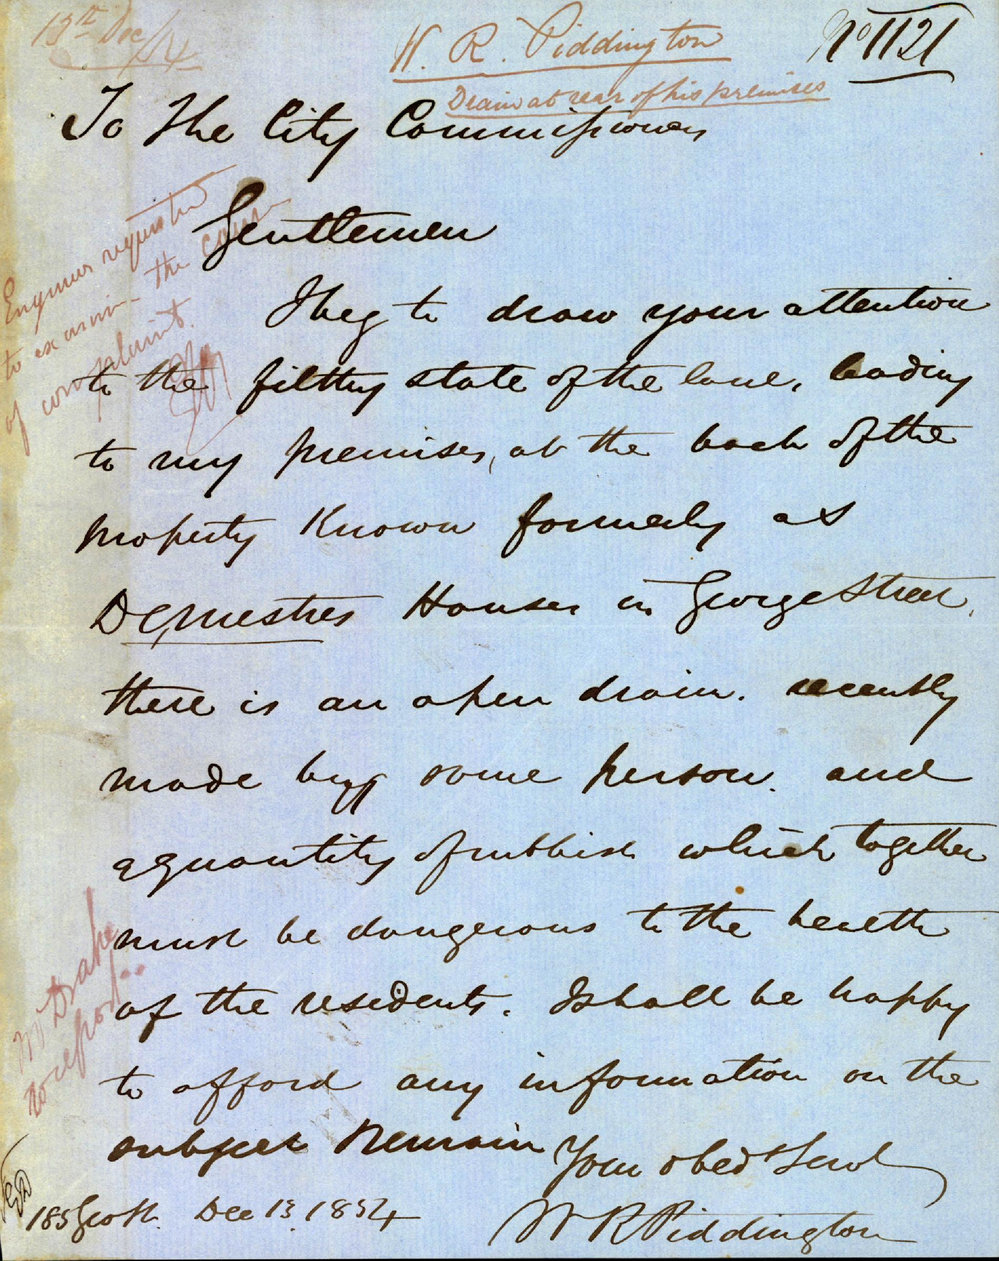 13th Dec /54
W. R. Piddington
No 1121
Drain at rear of his premises
To The City Commissioners
Gentlemen
I beg to draw your attention
to the filthy state of the lane, leading
to my premises, at the back of the
property Known formerly as
Demestres Houses in George Street,
there is an open drain. recently
made by some person. and
a quantity of rubbish which together
must be dangerous to the health
of the residents. I shall be happy
to afford any information on the
subject Remain
Your obed Servt
W R Piddington
Dec 13, 1854
Engineer requested
to examine the cause
of complaint.
Mr Drake
to report